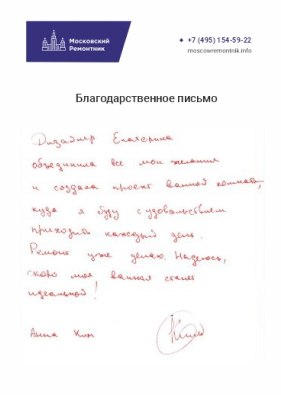 Московский
Ремонтник
+7 (495) 154-59-22
moscowremontnik.info
Благодарственное письмо
Дизайнер Екатерина
объединила все мои желания
и создала проект ванной комнаты,
куда я буду с удовольствием
приходить каждый день.
Ремонт уже делаю. Надеюсь,
скоро моя ванная станет
идеальной!
Анна Ким